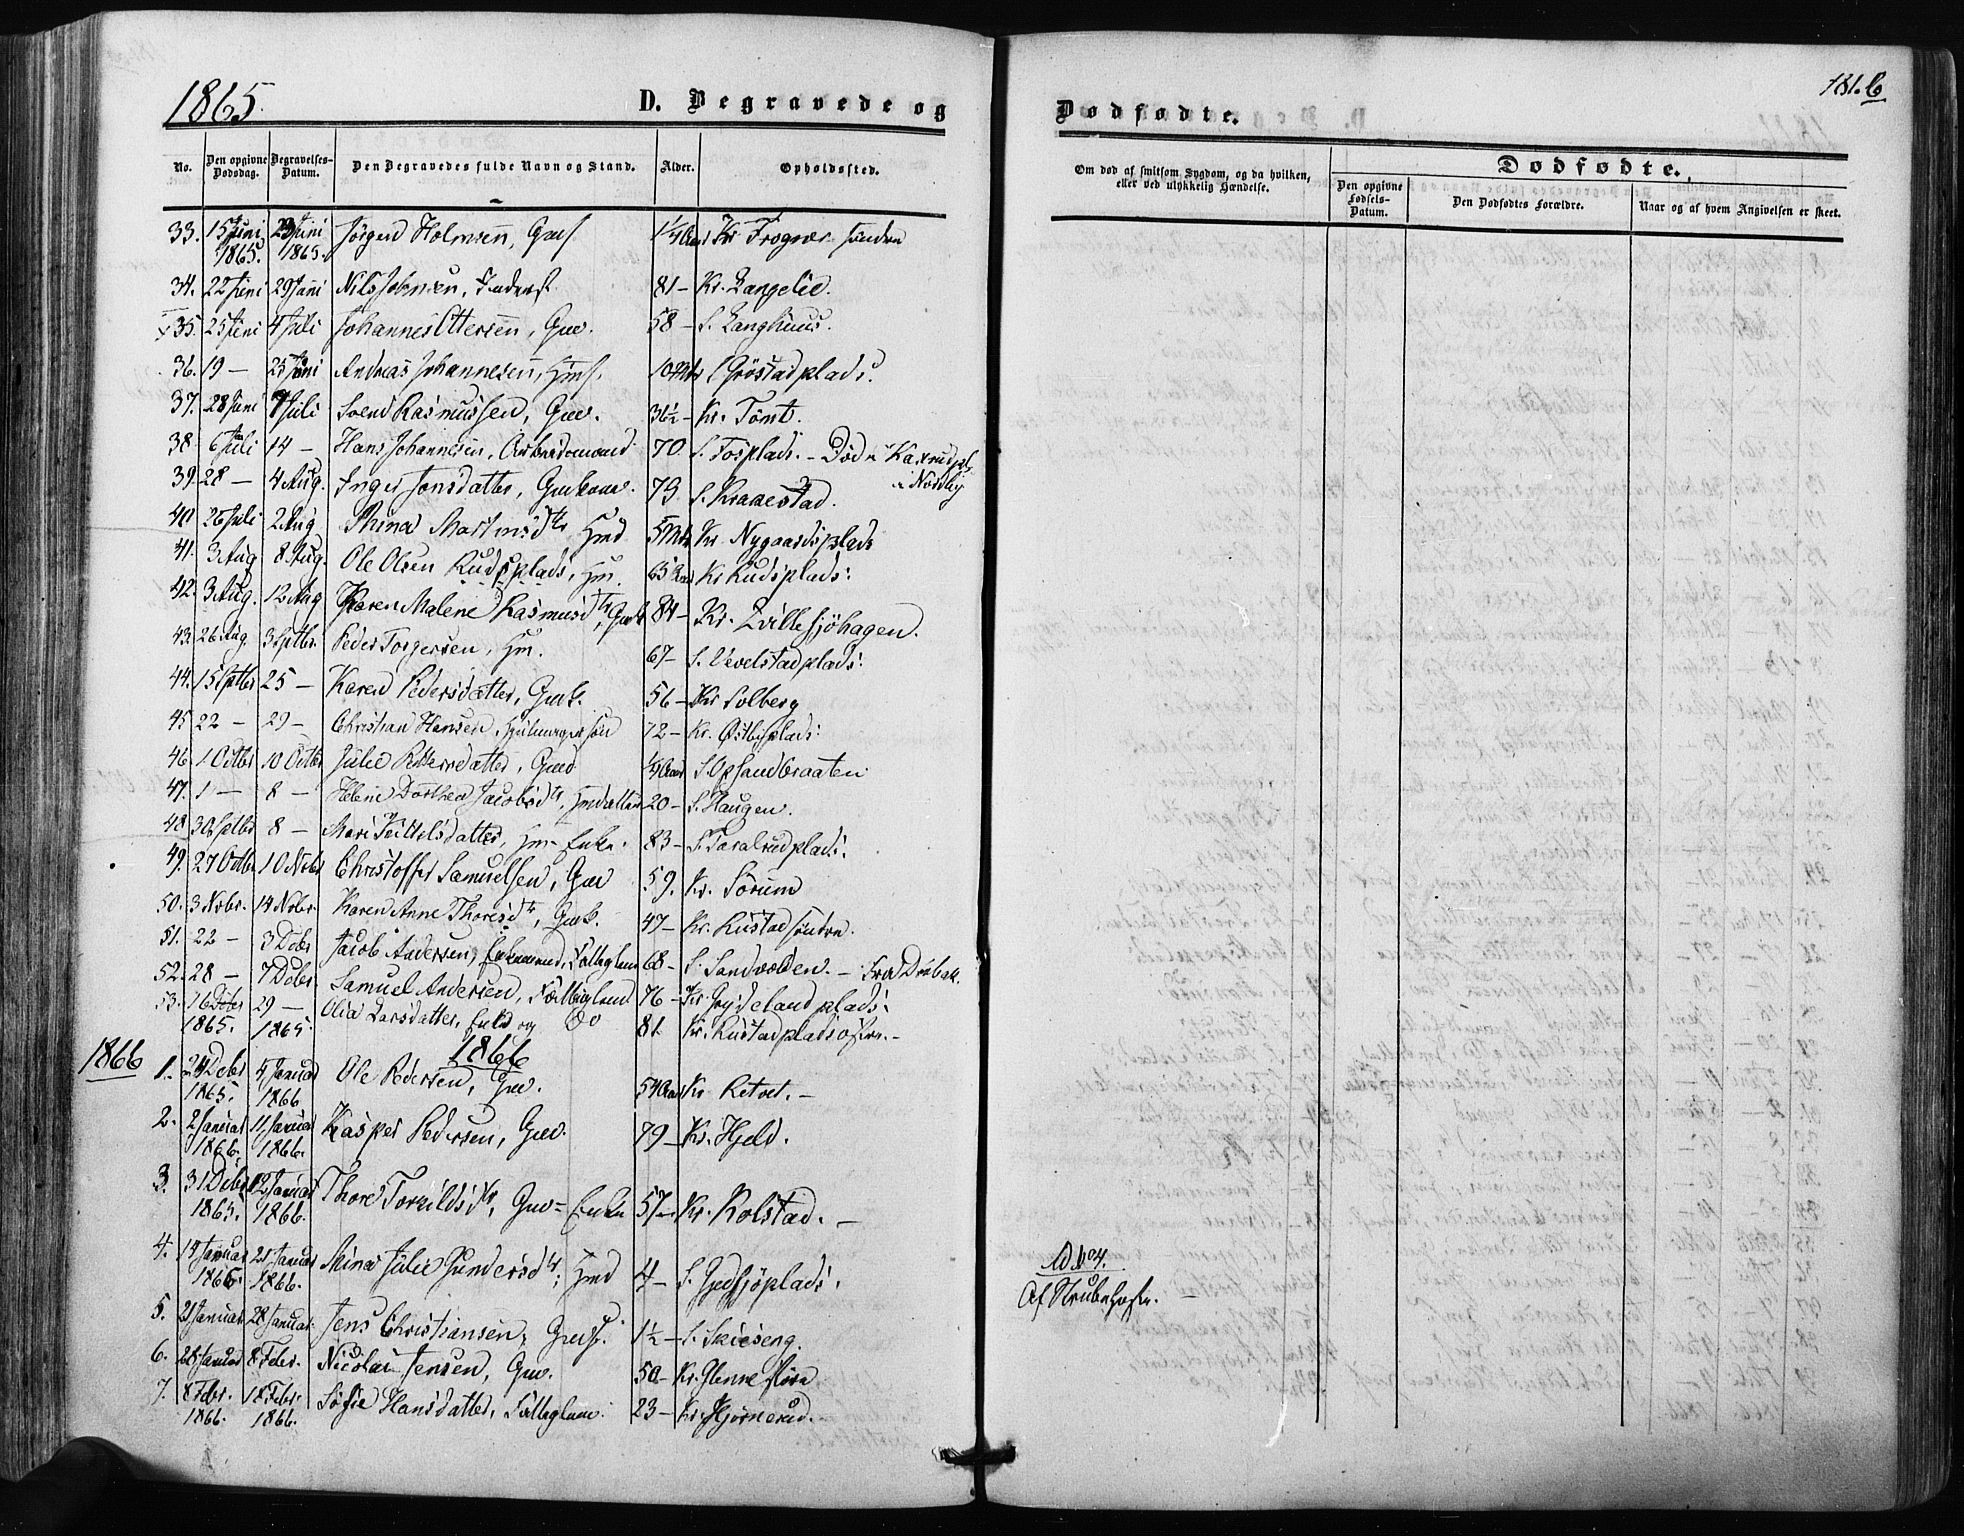 1865.
D. Begravede og
No. Den opgivne Dødsdag. Begravelses-Datum. Den Begravedes fulde Navn og Stand. Alder. Opholdssted.
33. 15 Juni 1865. 23 Juni 1865. Jørgen Holmsen, Gmds. 1/4 Aar Kr. Frogner søndre
34. 22 Juni 29 Juni Nils Johnsen, Inderst 81 – Kr. Langelie.
35. 25 Juni 4 Juli Johannes Ottersen, Gmd. 58 – S. Langhuus.
36. 19 – 25 Juni Andreas Johannesen, Hms. 10 Mdr. S. Gröstadplads.
37. 28 Juni 7 Juli Svend Rasmussen, Gmd. 36½ – Kr. Tømt.
38. 6 Juli 14 – Hans Johannesen, Arbeidsmand 70. S. Fosplads. – Død i Kaxrudpl. i Nordby
39. 28 – 4 Aug. Inger Jonsdatter, Gmkone. 73. S. Kraakestad.
40 26 Juli 2 Aug Mina Martinsdtr. Hmd 5 Mdr. Kr. Nygaardsplads
41. 3 Aug 8 Aug. Ole Olsen Rudsplads, Hm. 65 Aar Kr. Rudsplads.
42. 3 Aug. 12 Aug Karen Malene Rasmusdtr, Gmk 84 – Kr. Lillesjöhagen.
43. 26 Aug. 3 Septbr. Peder Torgersen, Hm. 67 – S. Vevelstadplads.
44. 15 Septbr 25 – Karen Pedersdatter, Gmk. 56 – Kr. Solberg
45 22 – 29 – Christian Hansen, 72 – Kr. Østbyplads.
46. 1 Octbr 10 Octbr Julie Pettersdatter, Gmd 1/4 Aar S. Opsandbraaten
47. 1 – 8 – Helene Dorthea Jacobsdtr, Hmdatter 20 – S. Haugen.
48. 30 Septbr 8 – Mari Kittelsdatter, Hm – Enke. 83 – S. Taralrudplads.
49. 27 Octbr 10 Novbr Christoffer Samuelsen, Gm 59. Kr. Sørum
50. 3 Novbr. 14 Novbr. Karen Anne Thoresdtr, Gmk. 47 – Kr. Rustad søndre.
51. 22 – 3 Decbr Jacob Andersen, Enkemand, Fattiglem 68 – S. Sandvolden. – Fra Drøbak.
52. 28 – 7 Decbr. Samuel Andersen, Fattiglem 76 – Kr. Grydelandplads.
53. 16 Decbr 1865. 29 – 1865. Olia Larsdatter, Enke og Do 81 Kr. Rustadplads østre. –
1866
1866
1. 24 Decbr 1865. 5 Januar 1866 Ole Pedersen, Gm. 54 Aar Kr. Retvet. –
2. 2 Januar 1866. 11 Januar 1866. Kasper Pedersen, Gm. 79 – Kr. Hjeld.
3. 31 Decbr 1865. 12 Januar 1866. Thore Torkildsdtr, Gm – Enke 57 – Kr. Kolstad. –
4. 14 Januar 1866. 21 Januar 1866. Mina Julie Gundersdtr; Hmd 4 – S. Gjedsjöplads.
5. 21 Januar 28 Januar Jens Christiansen, Gmds. 1½ – S. Skieseng.
6. 28 Januar 8 Febr. Nicolai Jensen, Gm. 50 – Kr. Glenne
7. 8 Febr. 1866 18 Febr. 1866. Sofie Hansdatter, Fattiglem. 23 – Kr. Hjørnerud.
181.b
Dødfødte.
Om død af smitsom Sygdom, og da hvilken, eller ved ulykkelig Hændelse.
Dødfødte.
Den opgivne Fødsels-Datum. Den Dødfødtes Forældre. Naar og af hvem Angivelsen er skeet.
Ad No 4.
Af Strubehoste. –